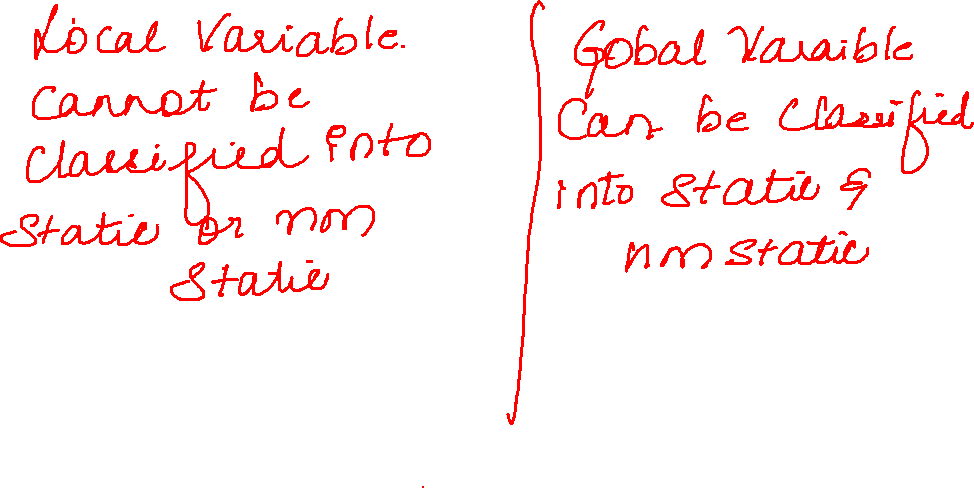 Local Variable.
cannot be
classified into
static or non
static
Gobal Varaible
Can be classified
into static &
non static